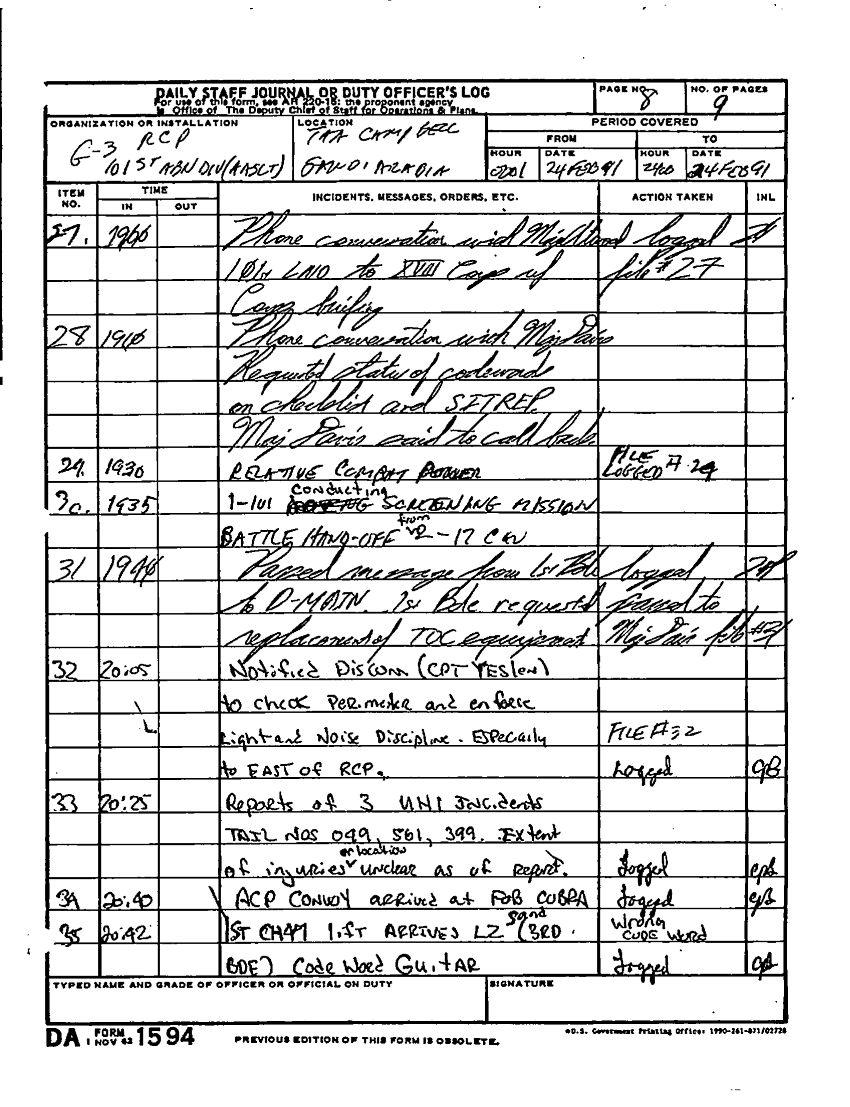 DAILY STAFF JOURNAL OR DUTY OFFICER'S LOG
For use of this form, see AR 220-15; the proponent agency
is Office of The Deputy Chief of Staff for Operations & Plans.
PAGE NO. 8
NO. OF PAGES 9
ORGANIZATION OR INSTALLATION
G-3 RCP
101ST ABN DIV (AASLT)
LOCATION
TAA CAMPBELL
SAUDI ARABIA
PERIOD COVERED
FROM TO
HOUR DATE HOUR DATE
0001 24 FEB 91 2400 24 FEB 91
ITEM NO. TIME INCIDENTS, MESSAGES, ORDERS, ETC. ACTION TAKEN INL
IN OUT
27. 1900 Phone conversation with Maj logged
101st LNO to XVIII Corps ref file # 27
Corps briefing
28 1910 Phone conversation with Maj Davis
Requested status of codewords
on checklist and SITREP.
Maj Davis said to call back
29. 1930 RELATIVE COMBAT POWER FILE LOGGED # 29
30. 1935 1-101 conducting SCREENING MISSION
BATTLE HAND-OFF from 2-17 CAV
31 1940 Passed message from 1st Bde logged
to D-MAIN. 1st Bde requests passed to
replacement of TOC equipment. Maj Davis file #31
32 20:05 Notified Discom (CPT YESlen)
to check Perimeter and enforce
Light and Noise Discipline. ESPecially FILE # 32
to EAST OF RCP. Logged
33 20:25 Reports of 3 UNI Incidents
TAIL NOS 049, 561, 399. Extent
of injuries or location unclear as of report. Logged
34 20:40 ACP CONVOY arrived at FOB COBRA Logged
35 20:42 1ST CH47 lift ARRIVES LZ Sand (3RD Wrong CODE WORD
BDE) Code Word GuitAR Logged
TYPED NAME AND GRADE OF OFFICER OR OFFICIAL ON DUTY
SIGNATURE
DA FORM 1 NOV 62 1594
PREVIOUS EDITION OF THIS FORM IS OBSOLETE.
*U.S. Government Printing Office: 1990-261-871/02728